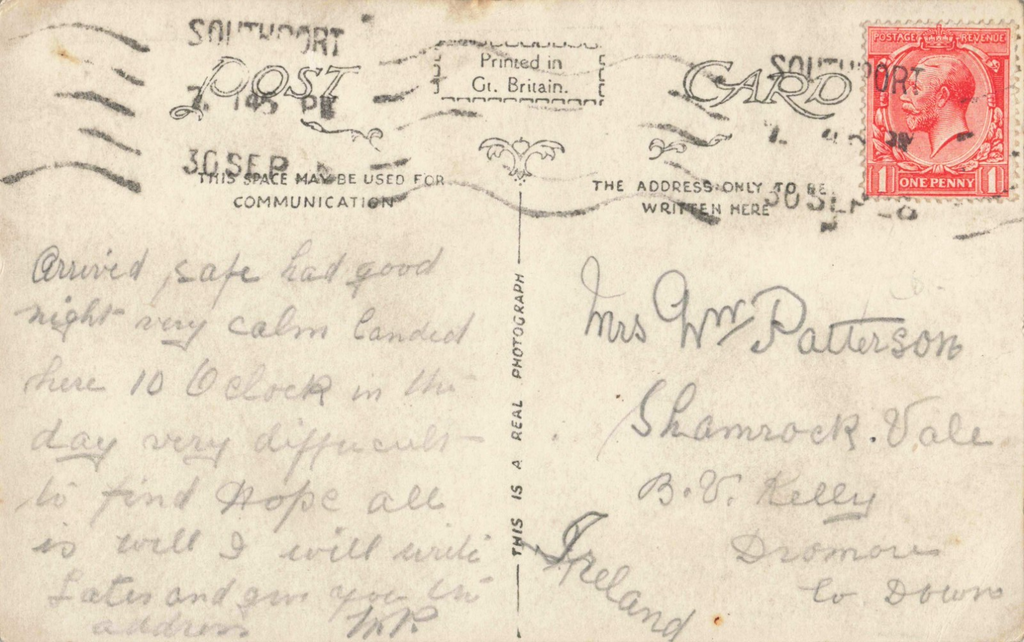 SOUTHPORT
7. 145 PM
30 SEP
POST CARD
Printed in
Gt. Britain.
SOUTHPORT
30 SEP 26
POSTAGE REVENUE
1 ONE PENNY 1
THIS SPACE MAY BE USED FOR
COMMUNICATION
THE ADDRESS ONLY TO BE
WRITTEN HERE
Arrived safe had good
night very calm landed
here 10 O Clock in the
day very difficult
to find Hope all
is well I will write
Later and give you the
address WP
THIS IS A REAL PHOTOGRAPH
Mrs Wm Patterson
Shamrock. Vale
B.V. Kelly
Dromore
Co Down
Ireland